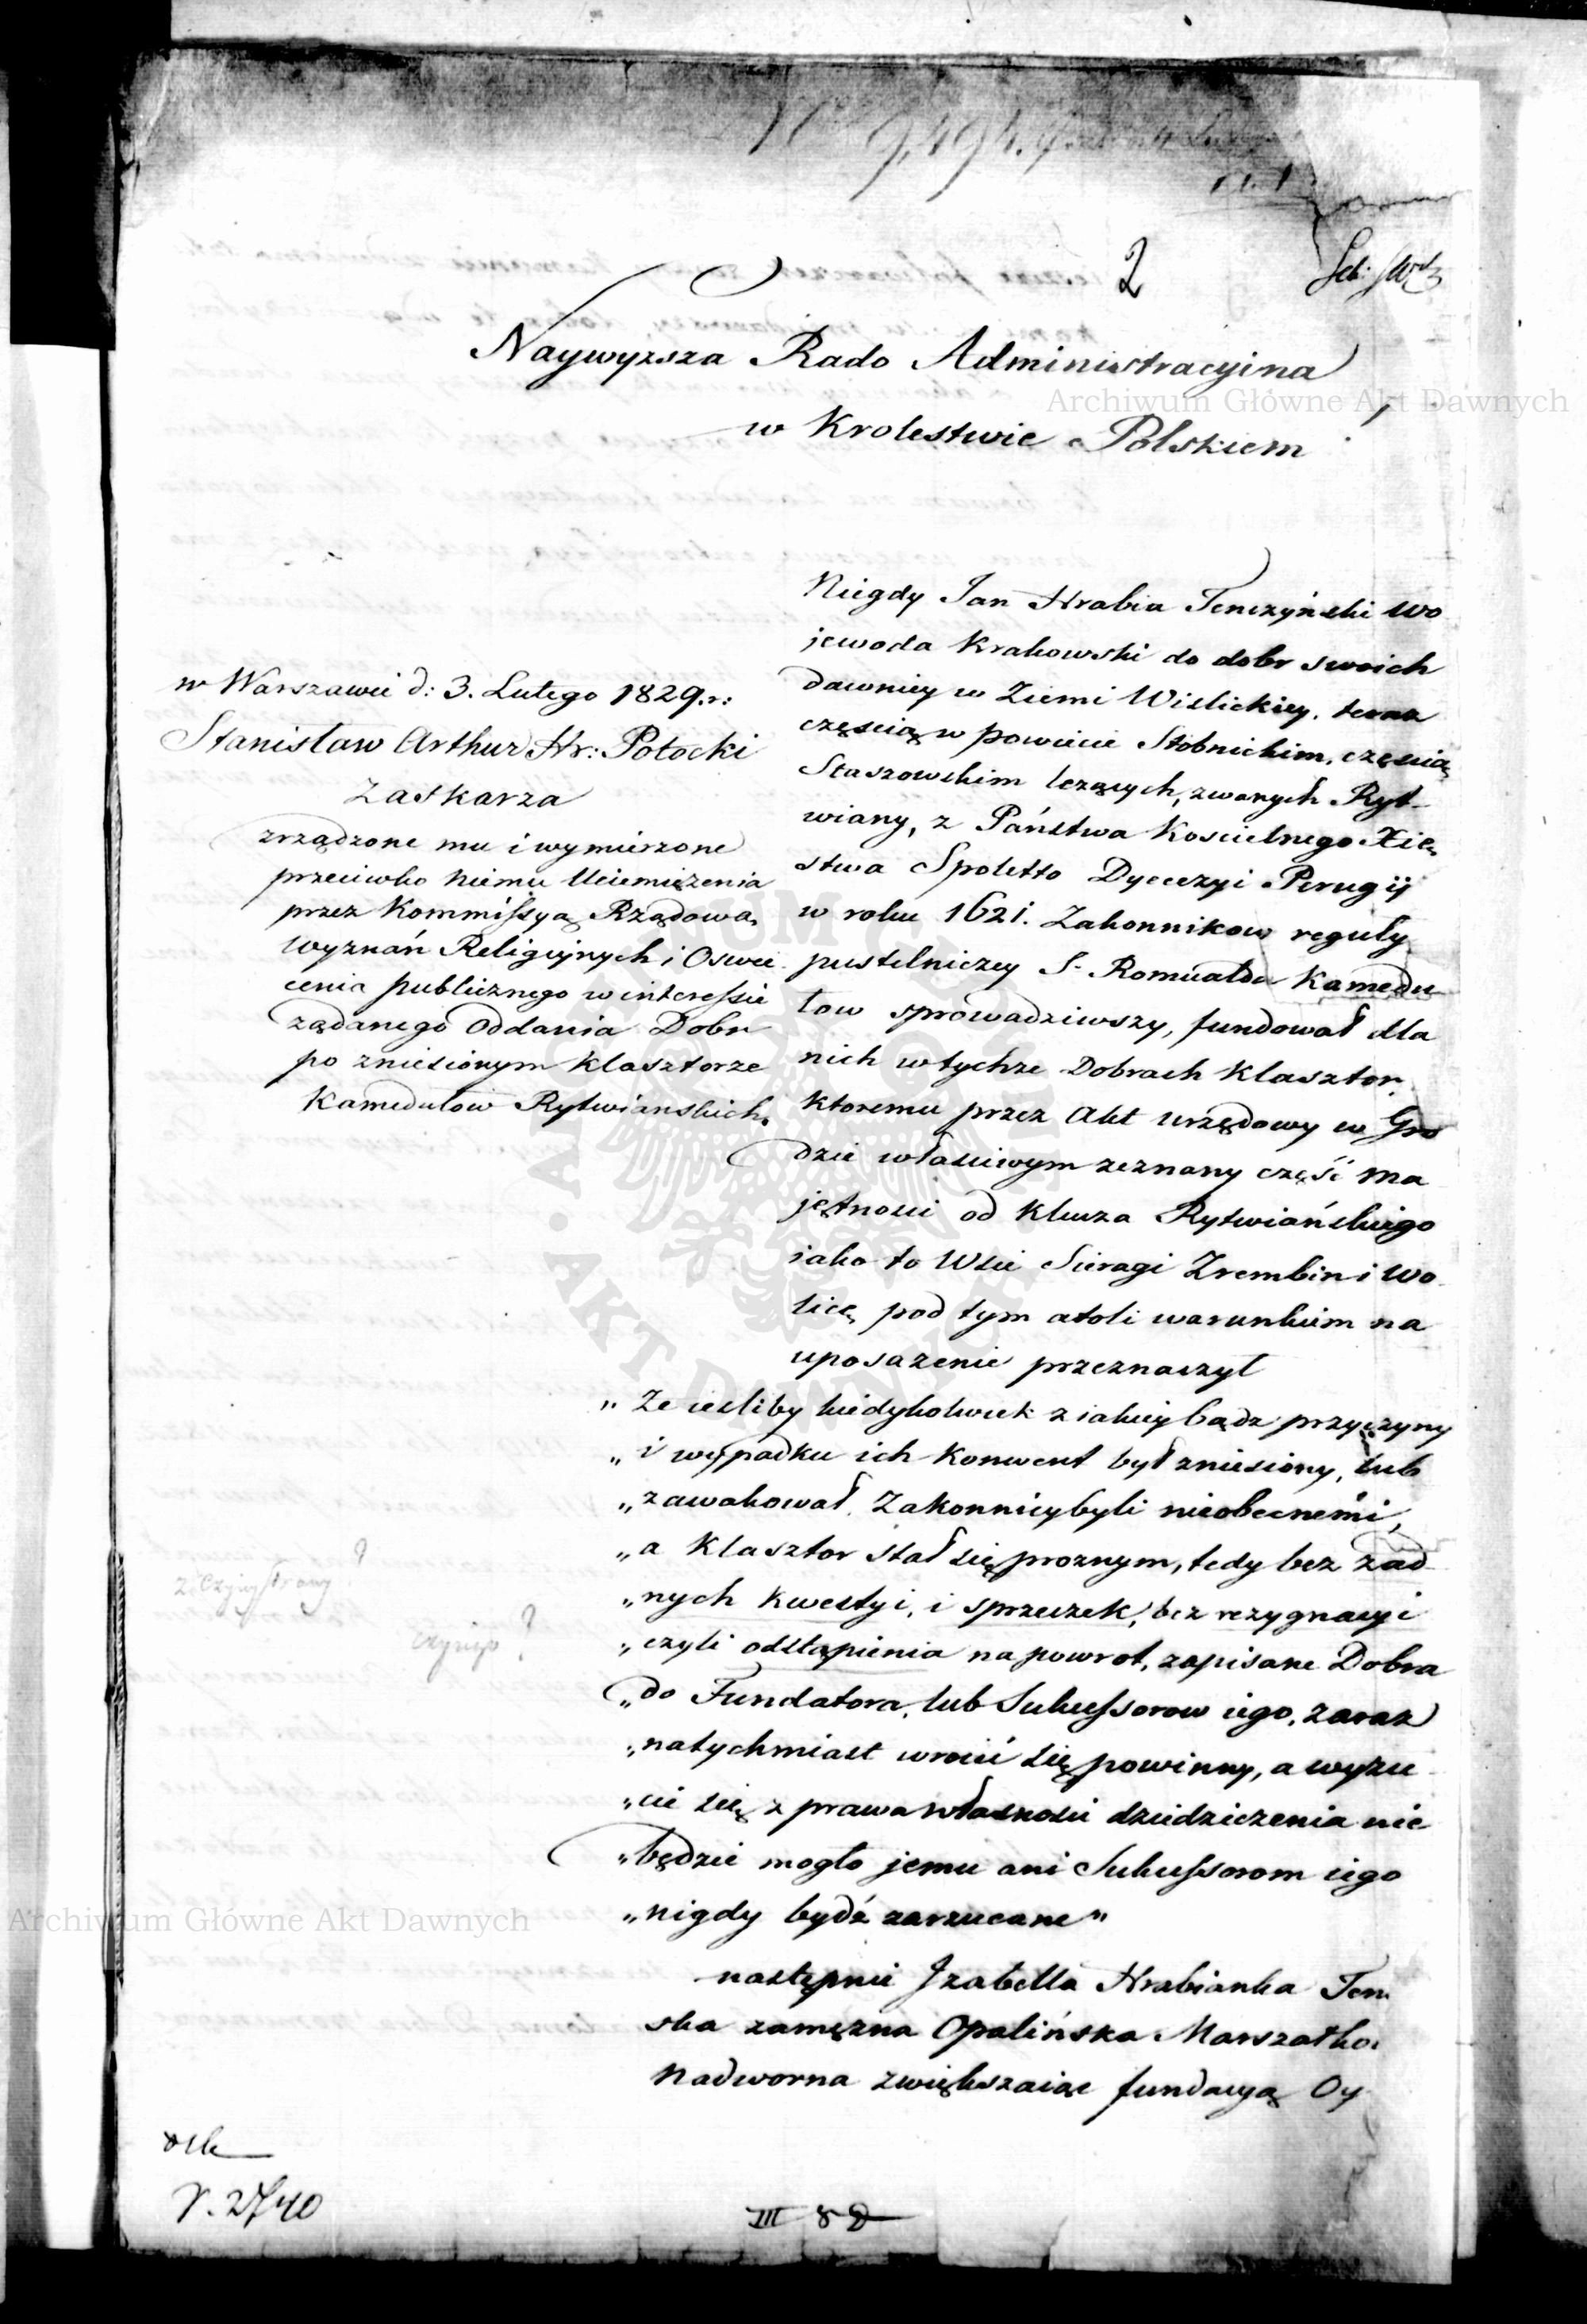 N 9,494.
2
Naywyzsza Rado Administracyina
w Krolestwie Polskiem
Archiwum Główne Akt Dawnych
w Warszawie d: 3. Lutego 1829.r:
Stanisław Arthur Hr: Potocki
Zaskarza
zrządzone mu i wymierzone
przeciwko niemu Uciemiężenia
przez Kommissyą Rządową
Wyznań Religijnych i Oswie
cenia publicznego w interessie
żądanego Oddania Dobr
po zniesionym Klasztorze
Kamedułow Rytwianskich.
Niegdy Jan Hrabia Tenczyński Wo
jewoda Krakowski do dobr swoich
dawniey w Ziemi Wislickiey, teraz
częscią w powiecie Stobnickim, częscią
Staszowskim lezących, zwanych Ryt-
wiany, z Państwa Koscielnego Xię
stwa Spoletto Dyecezyi Perugij
w roku 1621. Zakonnikow reguły
pustelniczey S. Romualda Kamedu
łow sprowadziwszy, fundował dla
nich w tychze Dobrach Klasztor,
Ktoremu przez Akt urzędowy w Gro
dzie właściwym zeznany część ma
jętnosci od Klucza Rytwiańskiego
iako to Wsie Sieragi Zrembin i Wo
licę pod tym atoli warunkiem na
uposazenie przeznaczył
„Ze iesliby kiedykolwiek z iakiey bądz przyczyny
„i wypadku ich Konwent był zniesiony, lub
„zawakował, Zakonnicy byli nieobecnemi,
„a Klasztor stał się proznym, tedy bez zad
„nych kwestyi, i sprzeczek, bez rezygnacyi
„czyli odstąpienia na powrot, zapisane Dobra
„do Fundatora, lub Sukcessorow iego, zaraz
„natychmiast wrocić się powinny, a wyzu
„cie się z prawa własnosci dziedziczenia nie
„będzie mogło jemu ani Sukcessorom iego
„nigdy bydź zarzucane"
następnie Izabella Hrabianka Ten
ska zamęzna Opalińska Marszałko
Nadworna zwiększaiąc fundacyą Oy
z czyiey strony?
czyiego?
V. 2740
III 82
Archiwum Główne Akt Dawnych
ARCHIWUM GŁÓWNE AKT DAWNYCH